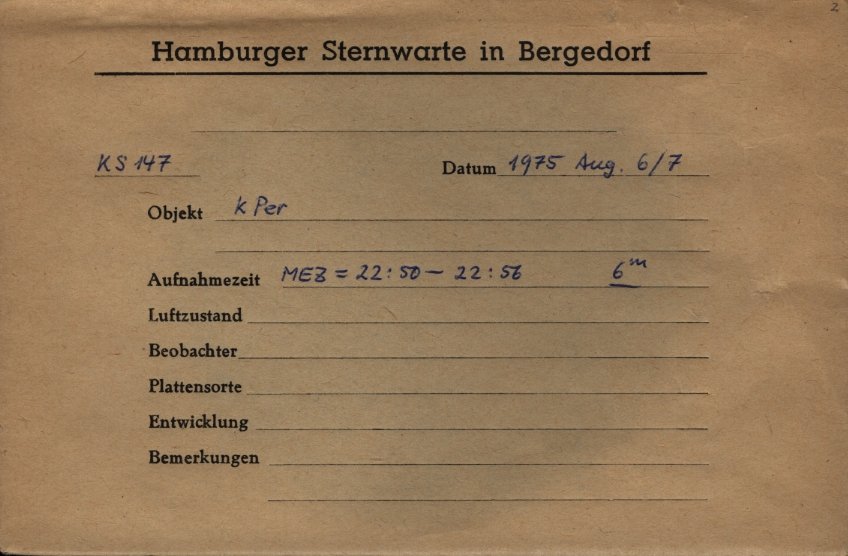 2
Hamburger Sternwarte in Bergedorf
KS 147 Datum 1975 Aug. 6/7
Objekt k Per
Aufnahmezeit MEZ = 22:50 – 22:56 6ᵐ
Luftzustand
Beobachter
Plattensorte
Entwicklung
Bemerkungen